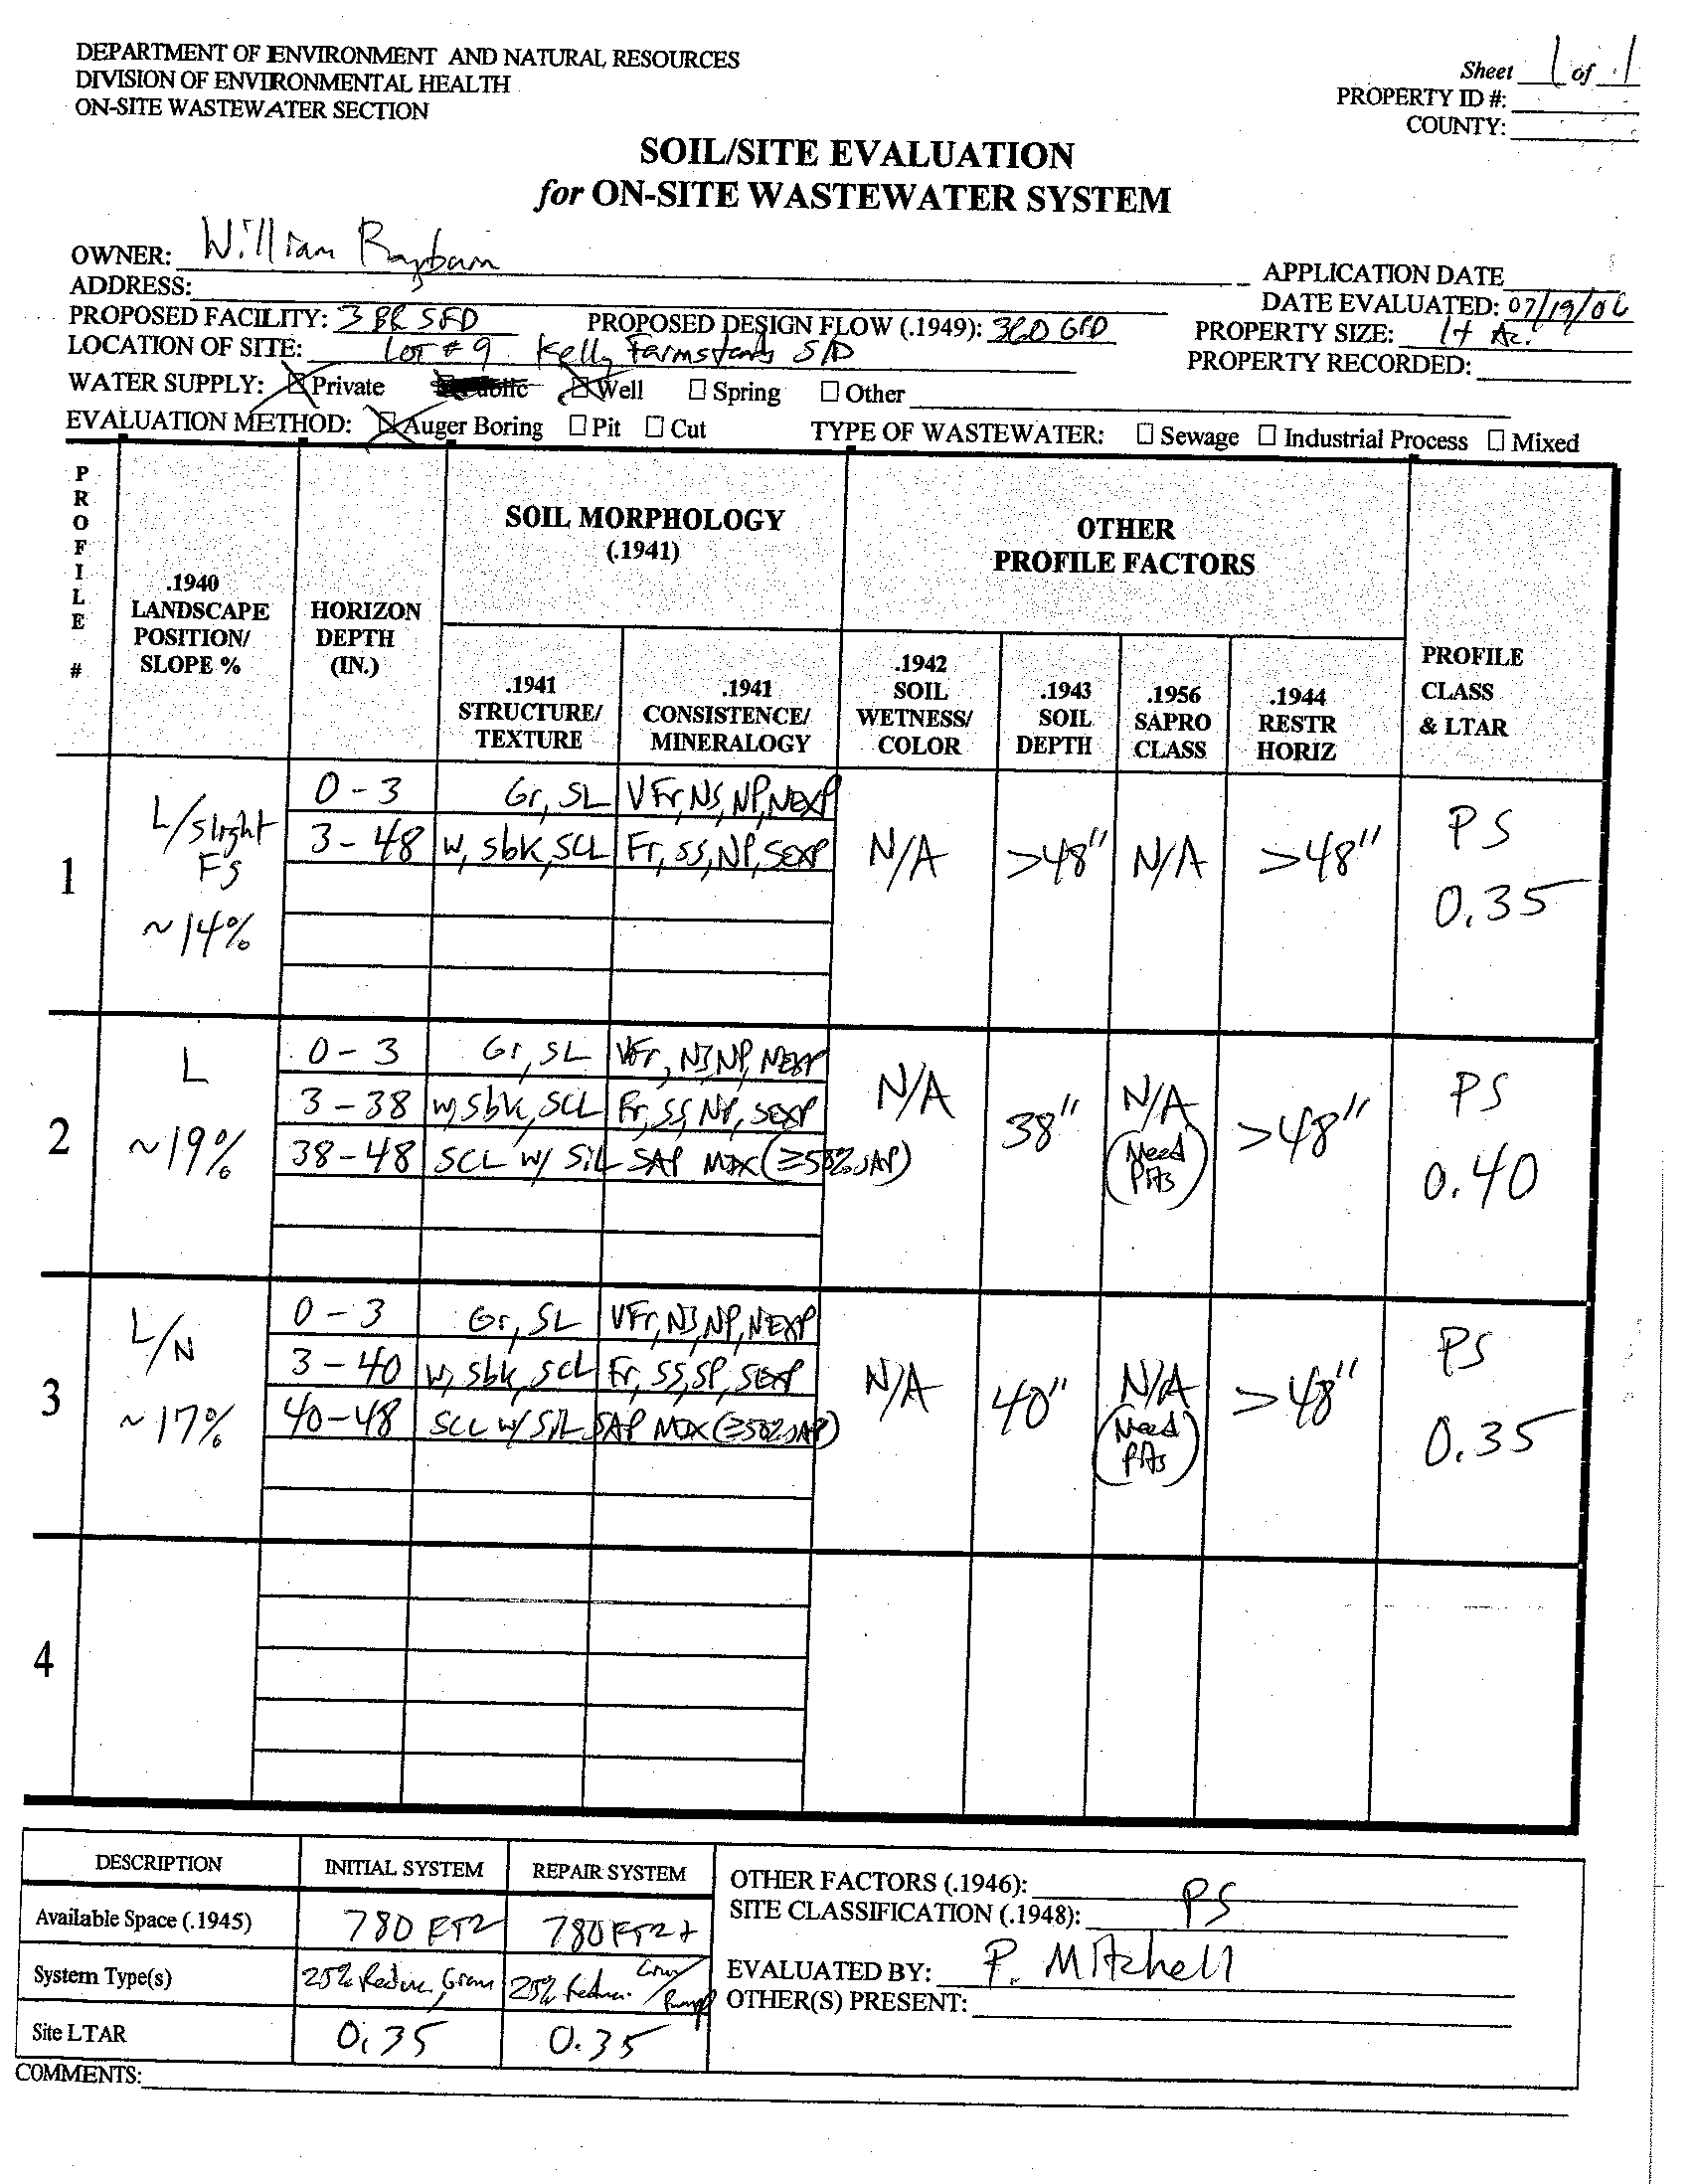 DEPARTMENT OF ENVIRONMENT AND NATURAL RESOURCES
DIVISION OF ENVIRONMENTAL HEALTH
ON-SITE WASTEWATER SECTION
Sheet 1 of 1
PROPERTY ID #:
COUNTY:
SOIL/SITE EVALUATION
for ON-SITE WASTEWATER SYSTEM
OWNER: William
ADDRESS:
APPLICATION DATE
DATE EVALUATED: 07/19/06
PROPOSED FACILITY: 3 BR SFD PROPOSED DESIGN FLOW (.1949): 360 GPD PROPERTY SIZE: 1+ Ac.
LOCATION OF SITE: Lot # 9 Kelly Farmstands S/D PROPERTY RECORDED:
WATER SUPPLY: Private Well Spring Other
EVALUATION METHOD: Auger Boring Pit Cut TYPE OF WASTEWATER: Sewage Industrial Process Mixed
PROFILE #
.1940 LANDSCAPE POSITION/ SLOPE %
HORIZON DEPTH (IN.)
SOIL MORPHOLOGY (.1941)
.1941 STRUCTURE/ TEXTURE
.1941 CONSISTENCE/ MINERALOGY
OTHER PROFILE FACTORS
.1942 SOIL WETNESS/ COLOR
.1943 SOIL DEPTH
.1956 SAPRO CLASS
.1944 RESTR HORIZ
PROFILE CLASS & LTAR
1
L/slight Fs ~14%
0-3 Gr, SL VFr, NS, NP, NEXP
3-48 W, sbk, SCL Fr, SS, NP, SEXP
N/A >48" N/A >48" PS 0.35
2
L ~19%
0-3 Gr, SL VFr, NS, NP, NEXP
3-38 W, sbk, SCL Fr, SS, NP, SEXP
38-48 SCL w/ SiL SAP MIX (≥50% SAP)
N/A 38" N/A (Need Pits) >48" PS 0.40
3
L/N ~17%
0-3 Gr, SL VFr, NS, NP, NEXP
3-40 W, sbk, SCL Fr, SS, SP, SEXP
40-48 SCL w/ SiL SAP MIX (≥50% SAP)
N/A 40" N/A (Need Pits) >48" PS 0.35
4
DESCRIPTION INITIAL SYSTEM REPAIR SYSTEM
Available Space (.1945) 780 FT2 780 FT2+
System Type(s) 25% Reduc. Grav 25% Reduc. Grav/Pump
Site LTAR 0.35 0.35
OTHER FACTORS (.1946):
SITE CLASSIFICATION (.1948): PS
EVALUATED BY: P. Mitchell
OTHER(S) PRESENT:
COMMENTS: